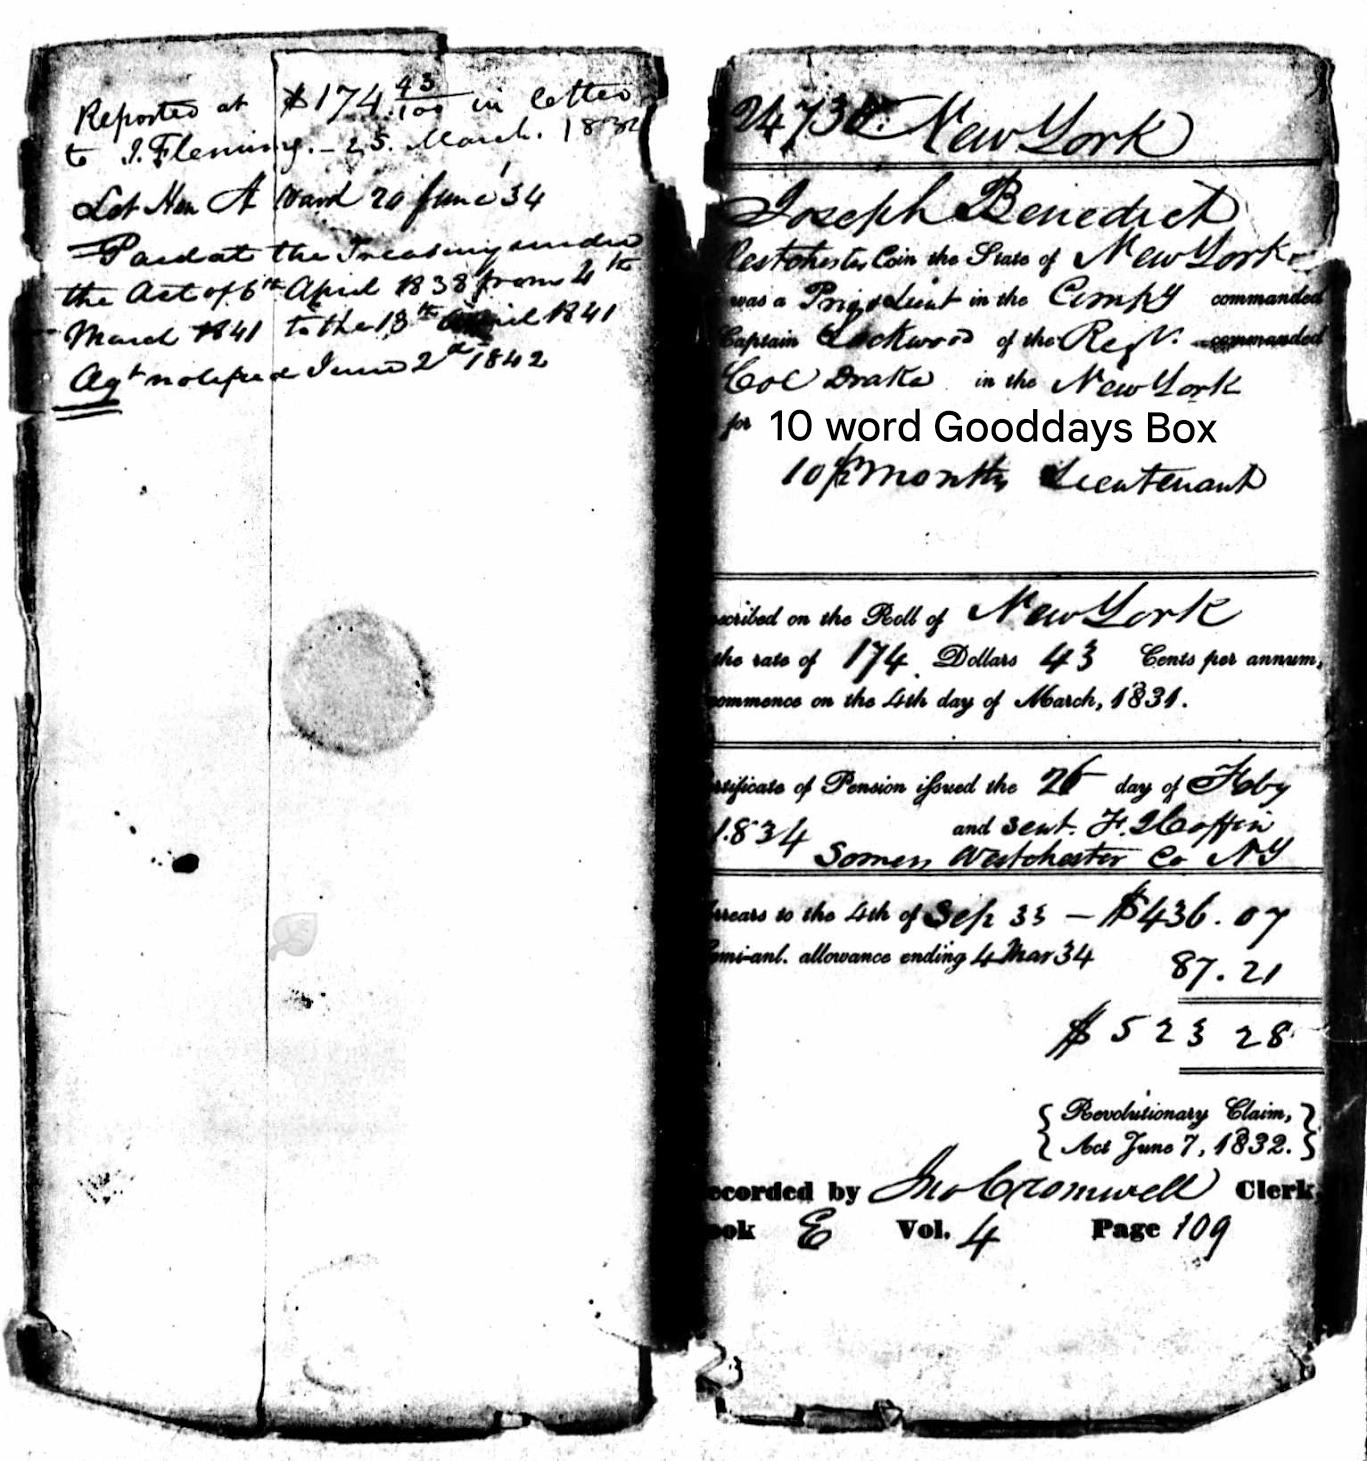 Reported at $174.43/100 in letter
to J. Fleming. – 25. March. 1834
Let Hon A Ward 20 June '34
Paid at the Treasury under
the Act of 6th April 1838 from 4th
March 1841 to the 13th April 1841
Agt notified June 2d 1842
New York
Joseph Benedict
Westchester Co in the State of New York
was a Priv & Lieut in the Compy commanded
Captain Lockwood of the Regt. commanded
Col Drake in the New York
for 10 word Gooddays Box
10 months Lieutenant
scribed on the Roll of New York
the rate of 174 Dollars 43 Cents per annum,
commence on the 4th day of March, 1831.
rtificate of Pension issued the 26 day of Feby
1834 and sent. F. J Coffin
Somers Westchester Co NY
rrears to the 4th of Sep 33 – $436.07
emi-anl. allowance ending 4 Mar 34 87.21
$523 28
{ Revolutionary Claim, }
{ Act June 7, 1832. }
ecorded by Jno Cromwell Clerk,
ook E Vol. 4 Page 109